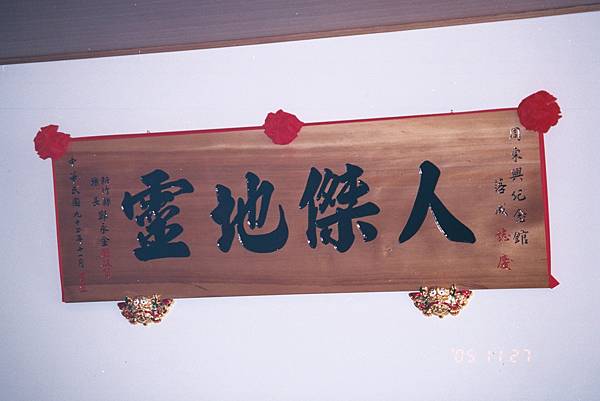 周東興紀念館
落成誌慶
人傑地靈
新竹縣
縣長鄭永金
中華民國九十四年十一月
'05 11 27